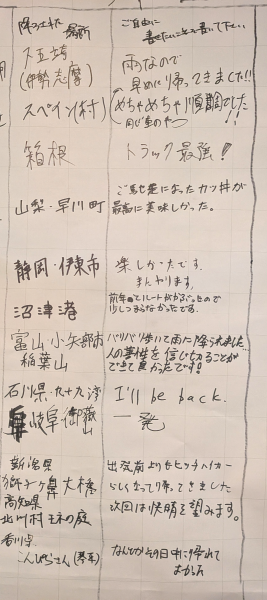 降ろされた場所
ご自由に
書きたいことを書いて下さい
大王埼
(伊勢志摩)
雨なので
早めに帰ってきました!!
スペイン(村)
めちゃめちゃ順調でした!!
箱根
トラック最強!
山梨・早川町
ご馳走になったカツ丼が
最高に美味しかった。
静岡・伊東市
楽しかったです。
まんぞくです。
沼津港
前年とルートがかぶったので
少しつまらなかったです。
富山・小矢部市
稲葉山
バリバリ歩いて雨に降られました
人の善性を信じきることが
できて良かったです!
石川県・九十九湾
I'll be back.
岐阜・御嶽山
一発
新潟県
獅子ヶ鼻大橋
出発前よりもヒッチハイカー
らしくなって帰ってきました
高知県
北川村モネの庭
次回は快晴を望みます。
香川県
こんぴらさん(琴平)
なんとかその日中に帰れて
よかった